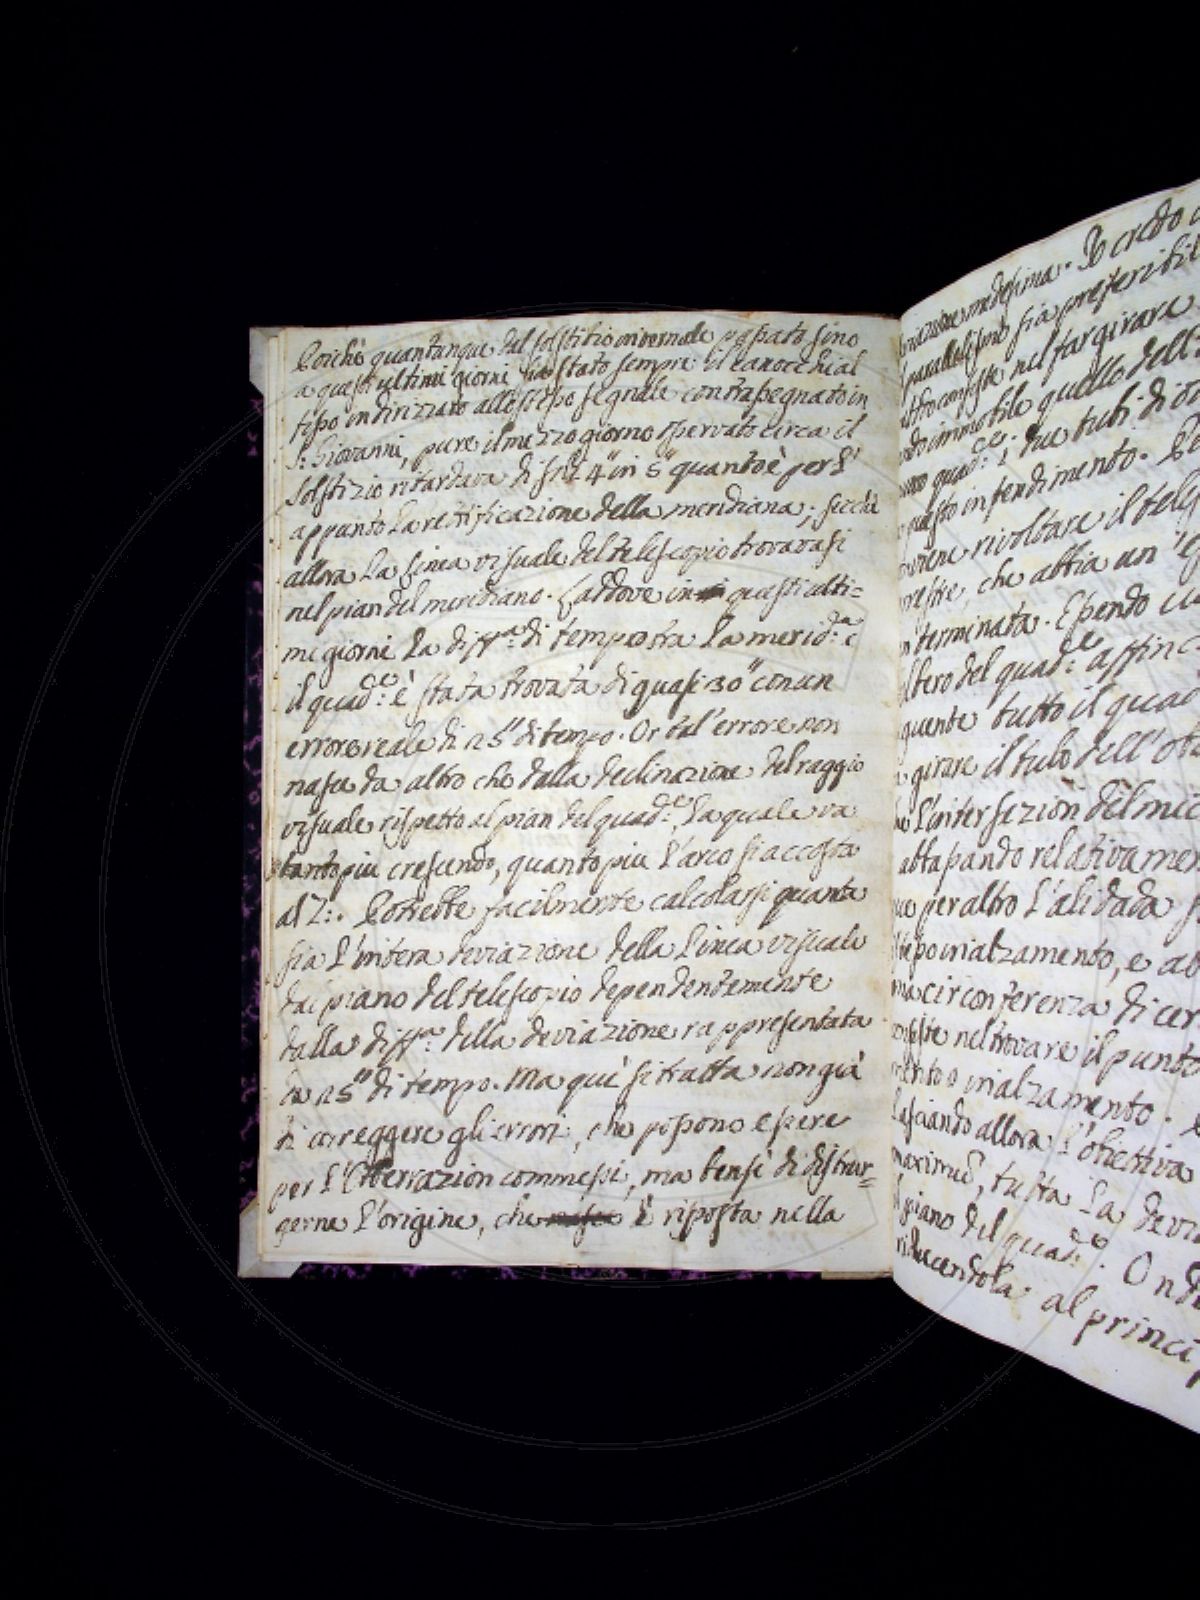 Poichè quantunque dal solstitio invernale passato sino
a questi ultimi giorni sia stato sempre il canocchial
fisso indirizzato allo stesso segnale contrasegnato in
S: Giovanni, pure il mezzo giorno osservato circa il
solstizio ritardava di soli 4" in 5" quanto è per l'
appunto la rettificazione della meridiana; sicchè
allora la linea visuale del telescopio trovavasi
nel pian del meridiano. Laddove in questi ulti=
mi giorni la diff.ª di tempo tra la merid.ª e
il quad.e è stata trovata di quasi 30" con un
errore reale di 25" di tempo. Or tal' errore non
nasce da altro che dalla declinazione del raggio
visuale rispetto al pian del quad.e, la quale va
tanto piu crescendo, quanto piu l'arco si accosta
al Z:. Potrebbe facilmente calcolarsi quanta
sia l'intera deviazione della linea visuale
dal piano del telescopio dependentemente
dalla diff.ª della deviazione rappresentata
da 25" di tempo. Ma qui si tratta non già
di correggere gli errori, che possono essere
per l'Aberrazion commessi, ma bensì di distrug=
gerne l'origine, che è riposta nella
medesima. Io credo
parallelismo sia preferibil
consiste nel far girare
immobile quello dell'
quad.e. I due tubi di
questo intendimento. 
rivoltare il teles
che abbia un
terminata. Essendo
del quad.e affinc
tutto il quad
girare il tubo dell'
l'intersezion del mic
relativamen
per altro l'alidada
inalzamento, e
circonferenza di cer
nel trovare il punto
inalzamento.
lasciando allora l'obiettiva
tutta la devia
piano del quad.e. Onde
riducendola al princi